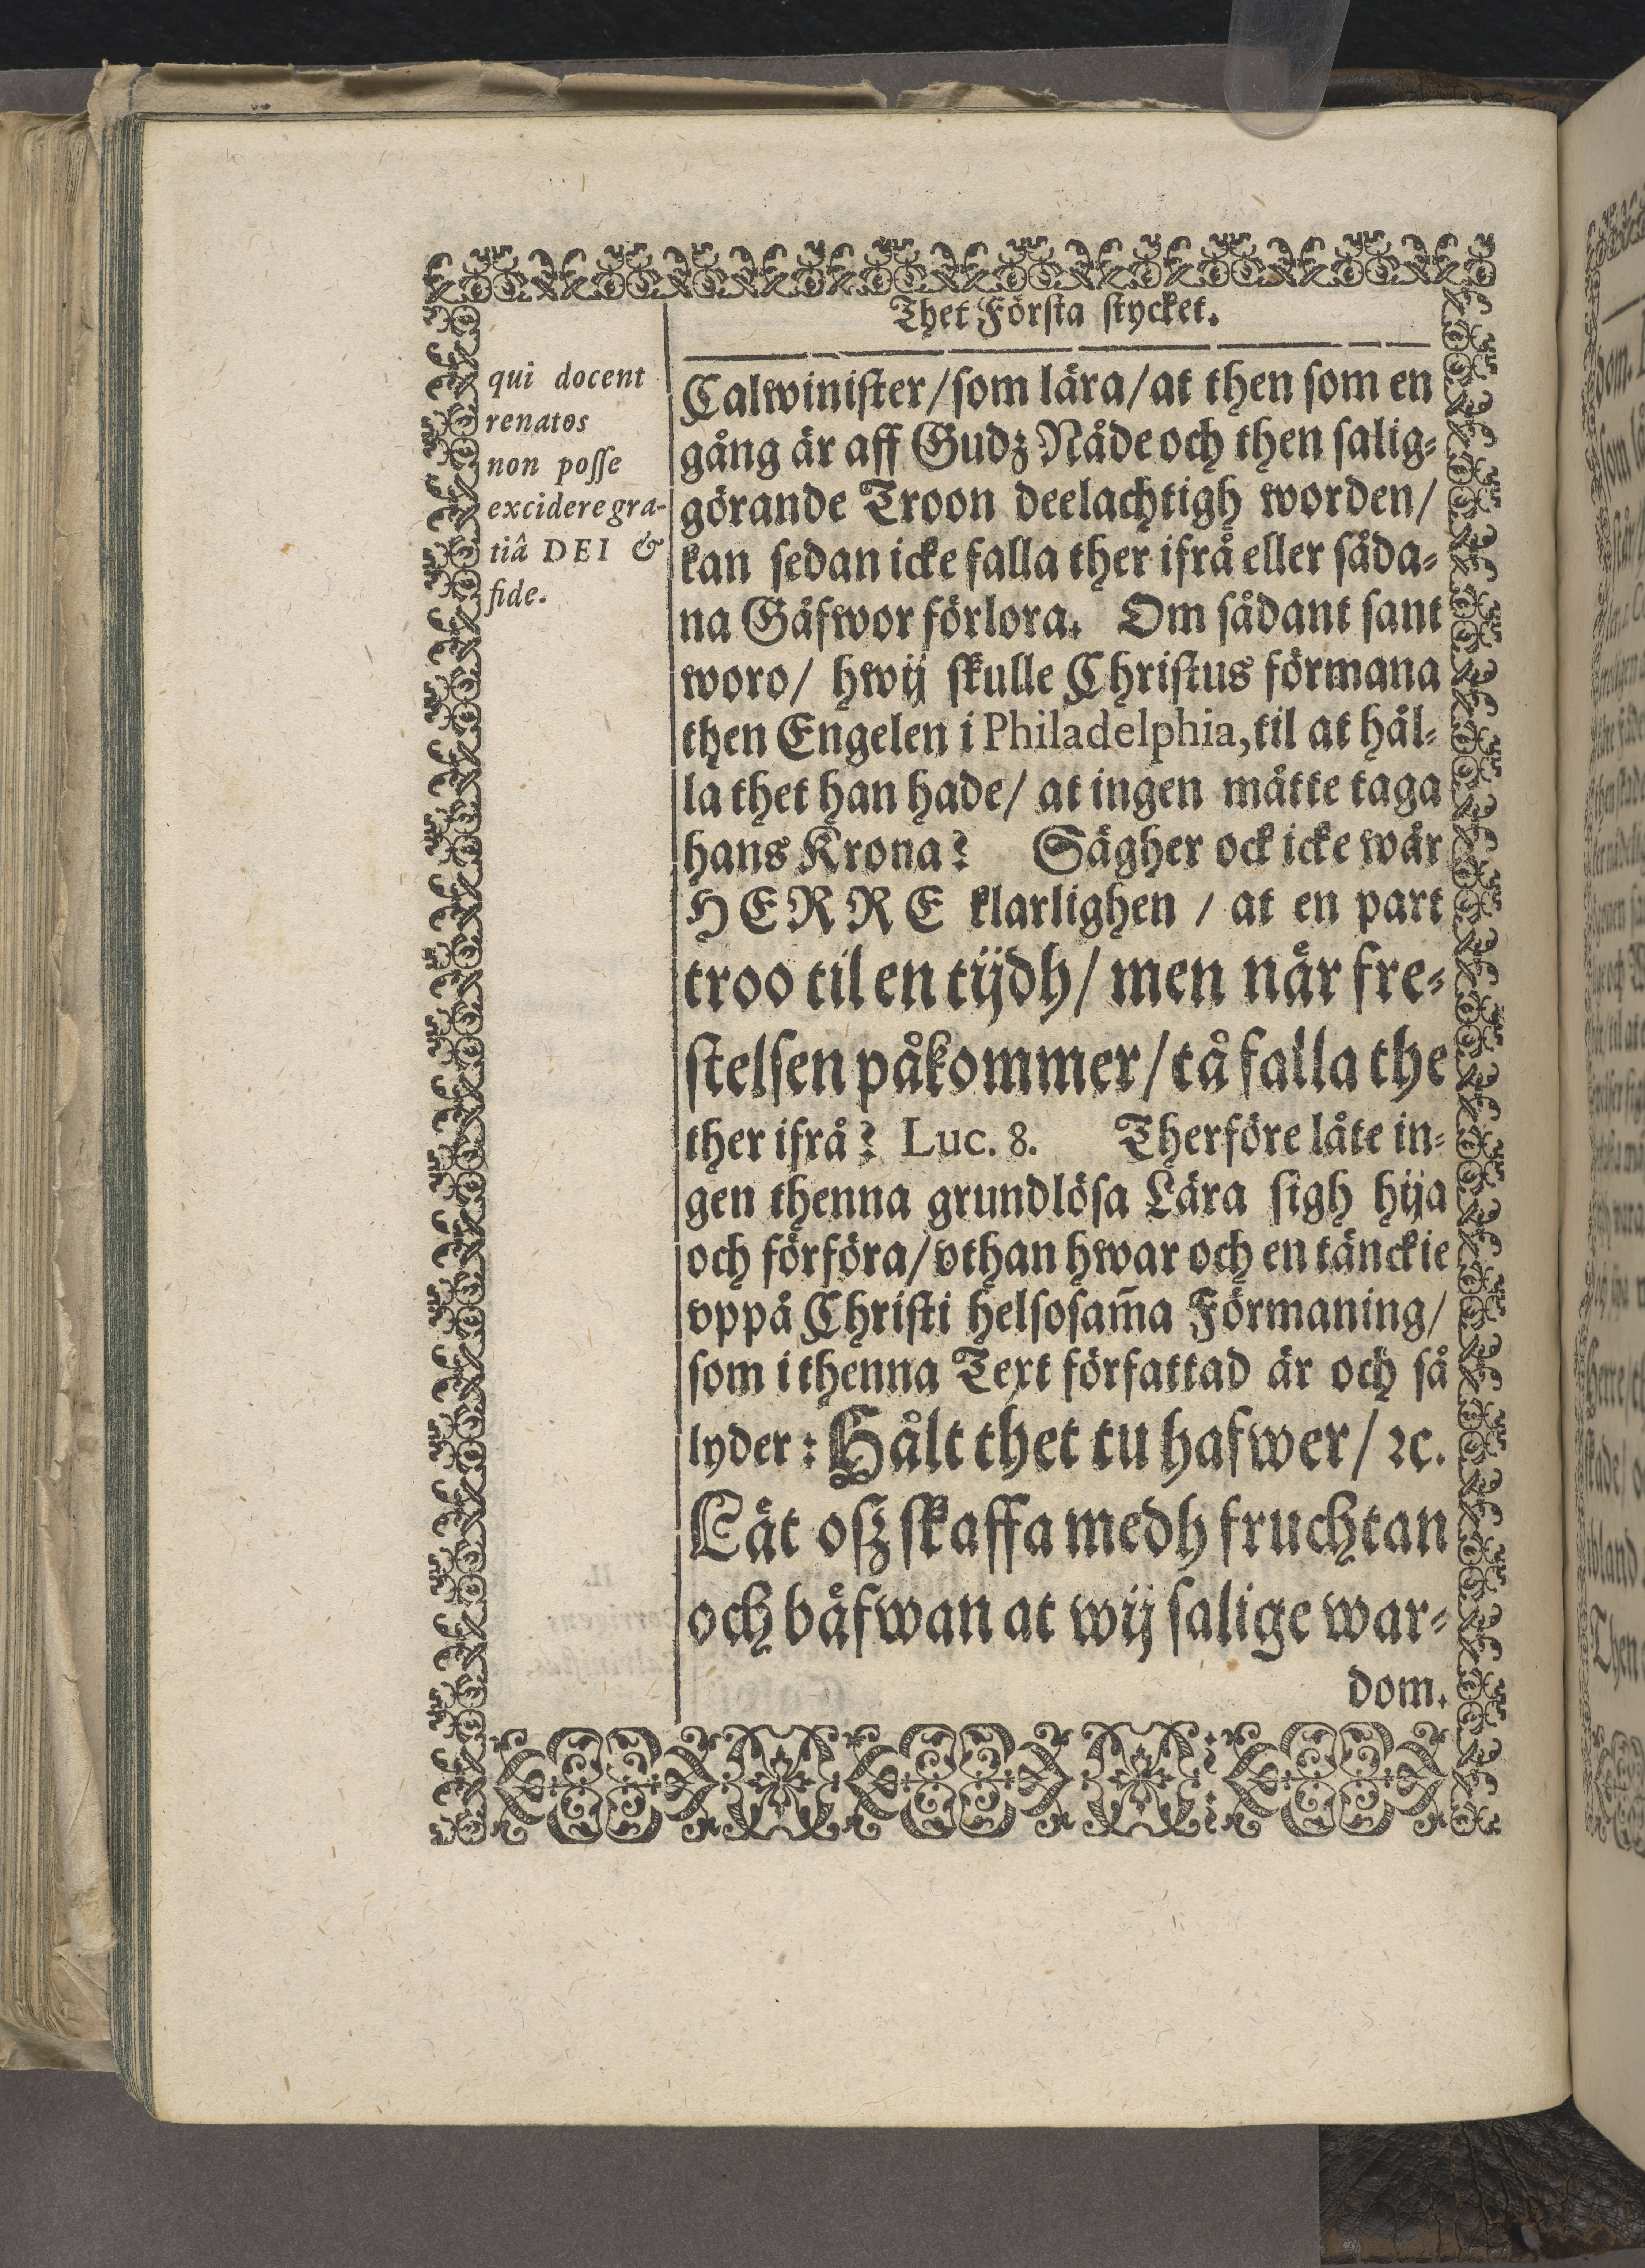 Thet Första stycket.
qui docent
renatos
non posse
excidere gra-
tiâ DEI &
fide.
Calwinister/som lära/at then som en
gång är aff Gudz Nåde och then salig-
görande Troon deelachtigh worden/
kan sedan icke falla ther ifrå eller såda-
na Gåfwor förlora. Om sådant sant
woro/ hwij skulle Christus förmana
then Engelen i Philadelphia, til at hål-
la thet han hade/ at ingen måtte taga
hans Krona? Sägher ock icke wår
HERRE klarlighen / at en part
troo til en tijdh/ men når fre-
stelsen påkommer/tå falla the
ther ifrå? Luc. 8. Therföre låte in-
gen thenna grundlösa Lära sigh hija
och förföra/vthan hwar och en tänckie
vppå Christi helsosam̃a Förmaning/
som i thenna Text författad är och så
lyder: Hålt thet tu hafwer/ ꝛc.
Låt oß skaffa medh fruchtan
och båfwan at wij salige war-
dom.